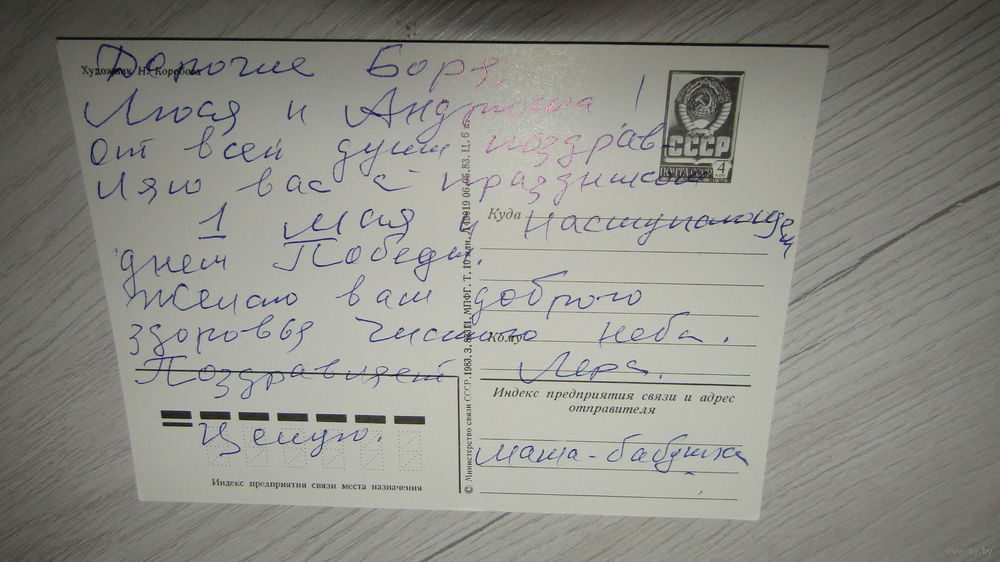 Художник Н. Коробова
Дорогие Боря,
Люся и Андрюша!
От всей души поздрав-
ляю вас с праздником
1 Мая и наступающем
днем Победы.
Желаю вам доброго
здоровья чистого неба.
Поздравляет Лера.
Целую.
маша-бабушка
СССР
ПОЧТА СССР
4
КОП
Куда
Кому
Индекс предприятия связи и адрес
отправителя
Индекс предприятия связи места назначения
© Министерство связи СССР. 1983. З. МПФГ. Т. 10 млн. 06.05.83. Ц. 6 к.
www.ay.by